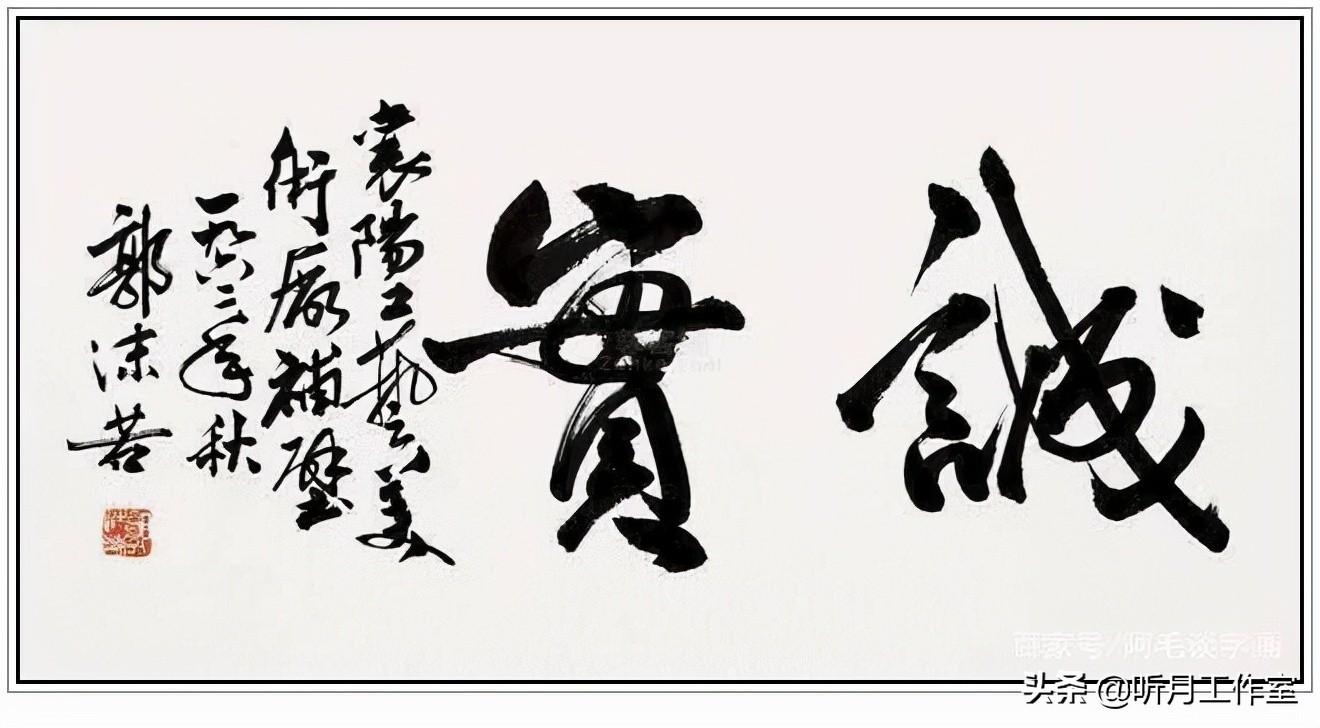 誠實
襄陽工艺美
術厰補壁
一九六二年秋
郭沫若
百家号/阿毛淡字画
头条 @听月工作室